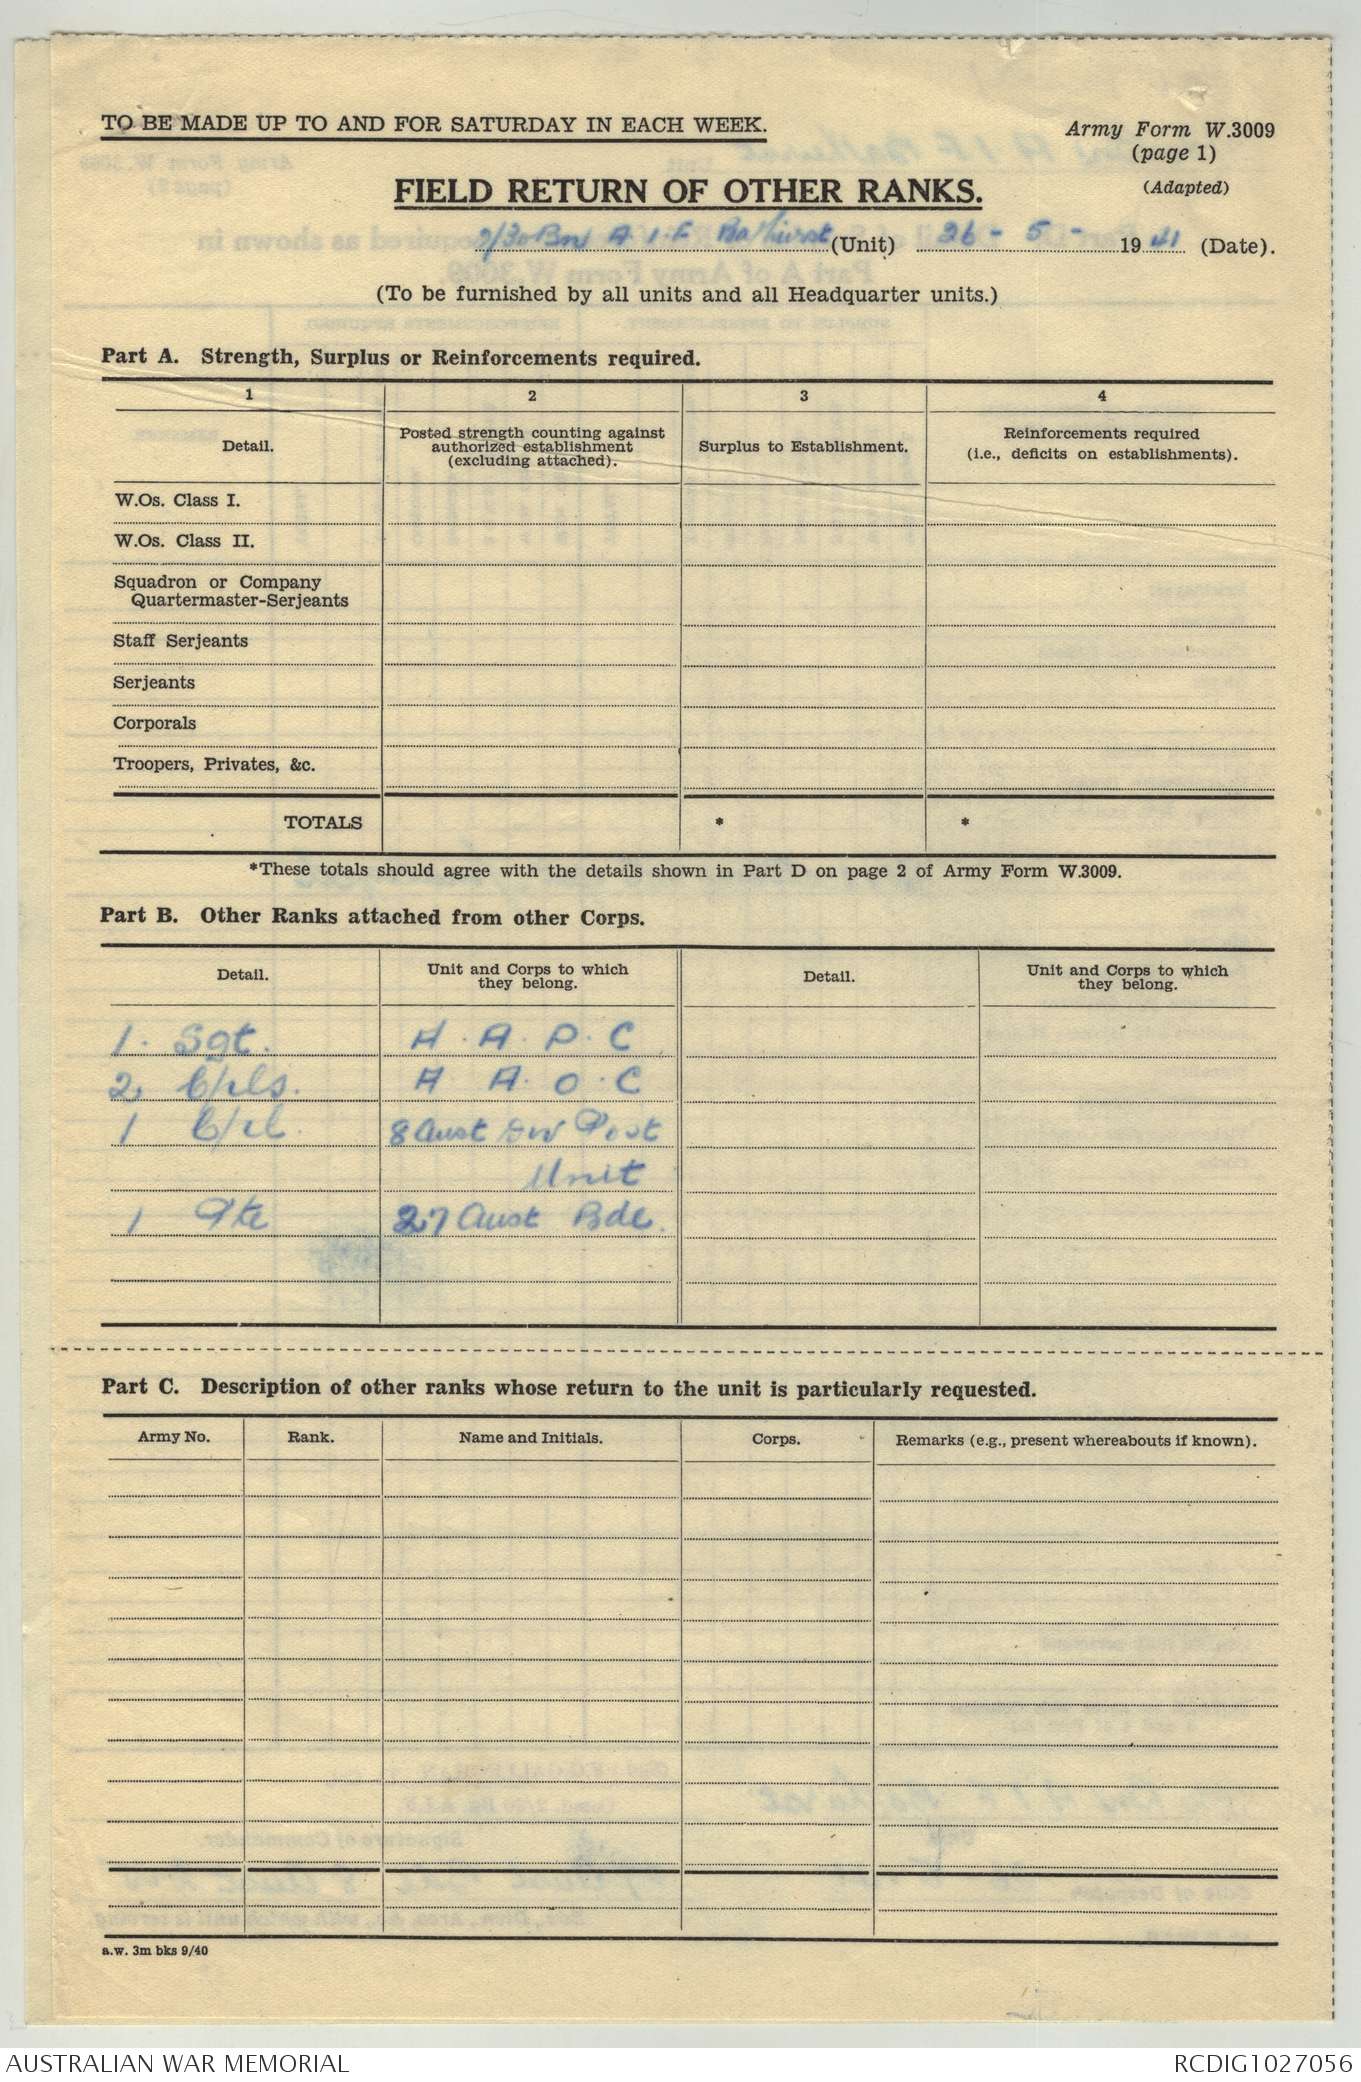 TO BE MADE UP TO AND FOR SATURDAY IN EACH WEEK.
Army Form W.3009
(page 1)
(Adapted)
FIELD RETURN OF OTHER RANKS.
2/30 Bn A.I.F. Bathurst (Unit) 26 - 5 - 1941 (Date).
(To be furnished by all units and all Headquarter units.)
Part A. Strength, Surplus or Reinforcements required.
1 2 3 4
Detail.
Posted strength counting against
authorized establishment
(excluding attached).
Surplus to Establishment.
Reinforcements required
(i.e., deficits on establishments).
W.Os. Class I.
W.Os. Class II.
Squadron or Company
Quartermaster-Serjeants
Staff Serjeants
Serjeants
Corporals
Troopers, Privates, &c.
TOTALS * *
*These totals should agree with the details shown in Part D on page 2 of Army Form W.3009.
Part B. Other Ranks attached from other Corps.
Detail.
Unit and Corps to which
they belong.
Detail.
Unit and Corps to which
they belong.
1. Sgt. A.A.P.C
2 C/pls. A A.O.C
1 C/pl. 8 Aust Div Post
Unit
1 Pte 27 Aust Bde.
Part C. Description of other ranks whose return to the unit is particularly requested.
Army No. Rank. Name and Initials. Corps. Remarks (e.g., present whereabouts if known).
a.w. 3m bks 9/40
AUSTRALIAN WAR MEMORIAL
RCDIG1027056